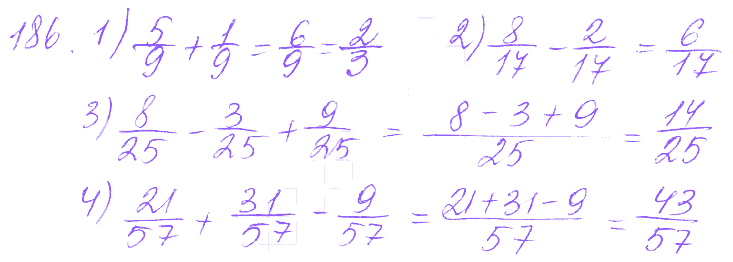 186. 1) 5/9 + 1/9 = 6/9 = 2/3 2) 8/17 - 2/17 = 6/17
3) 8/25 - 3/25 + 9/25 = (8 - 3 + 9)/25 = 14/25
4) 21/57 + 31/57 - 9/57 = (21 + 31 - 9)/57 = 43/57